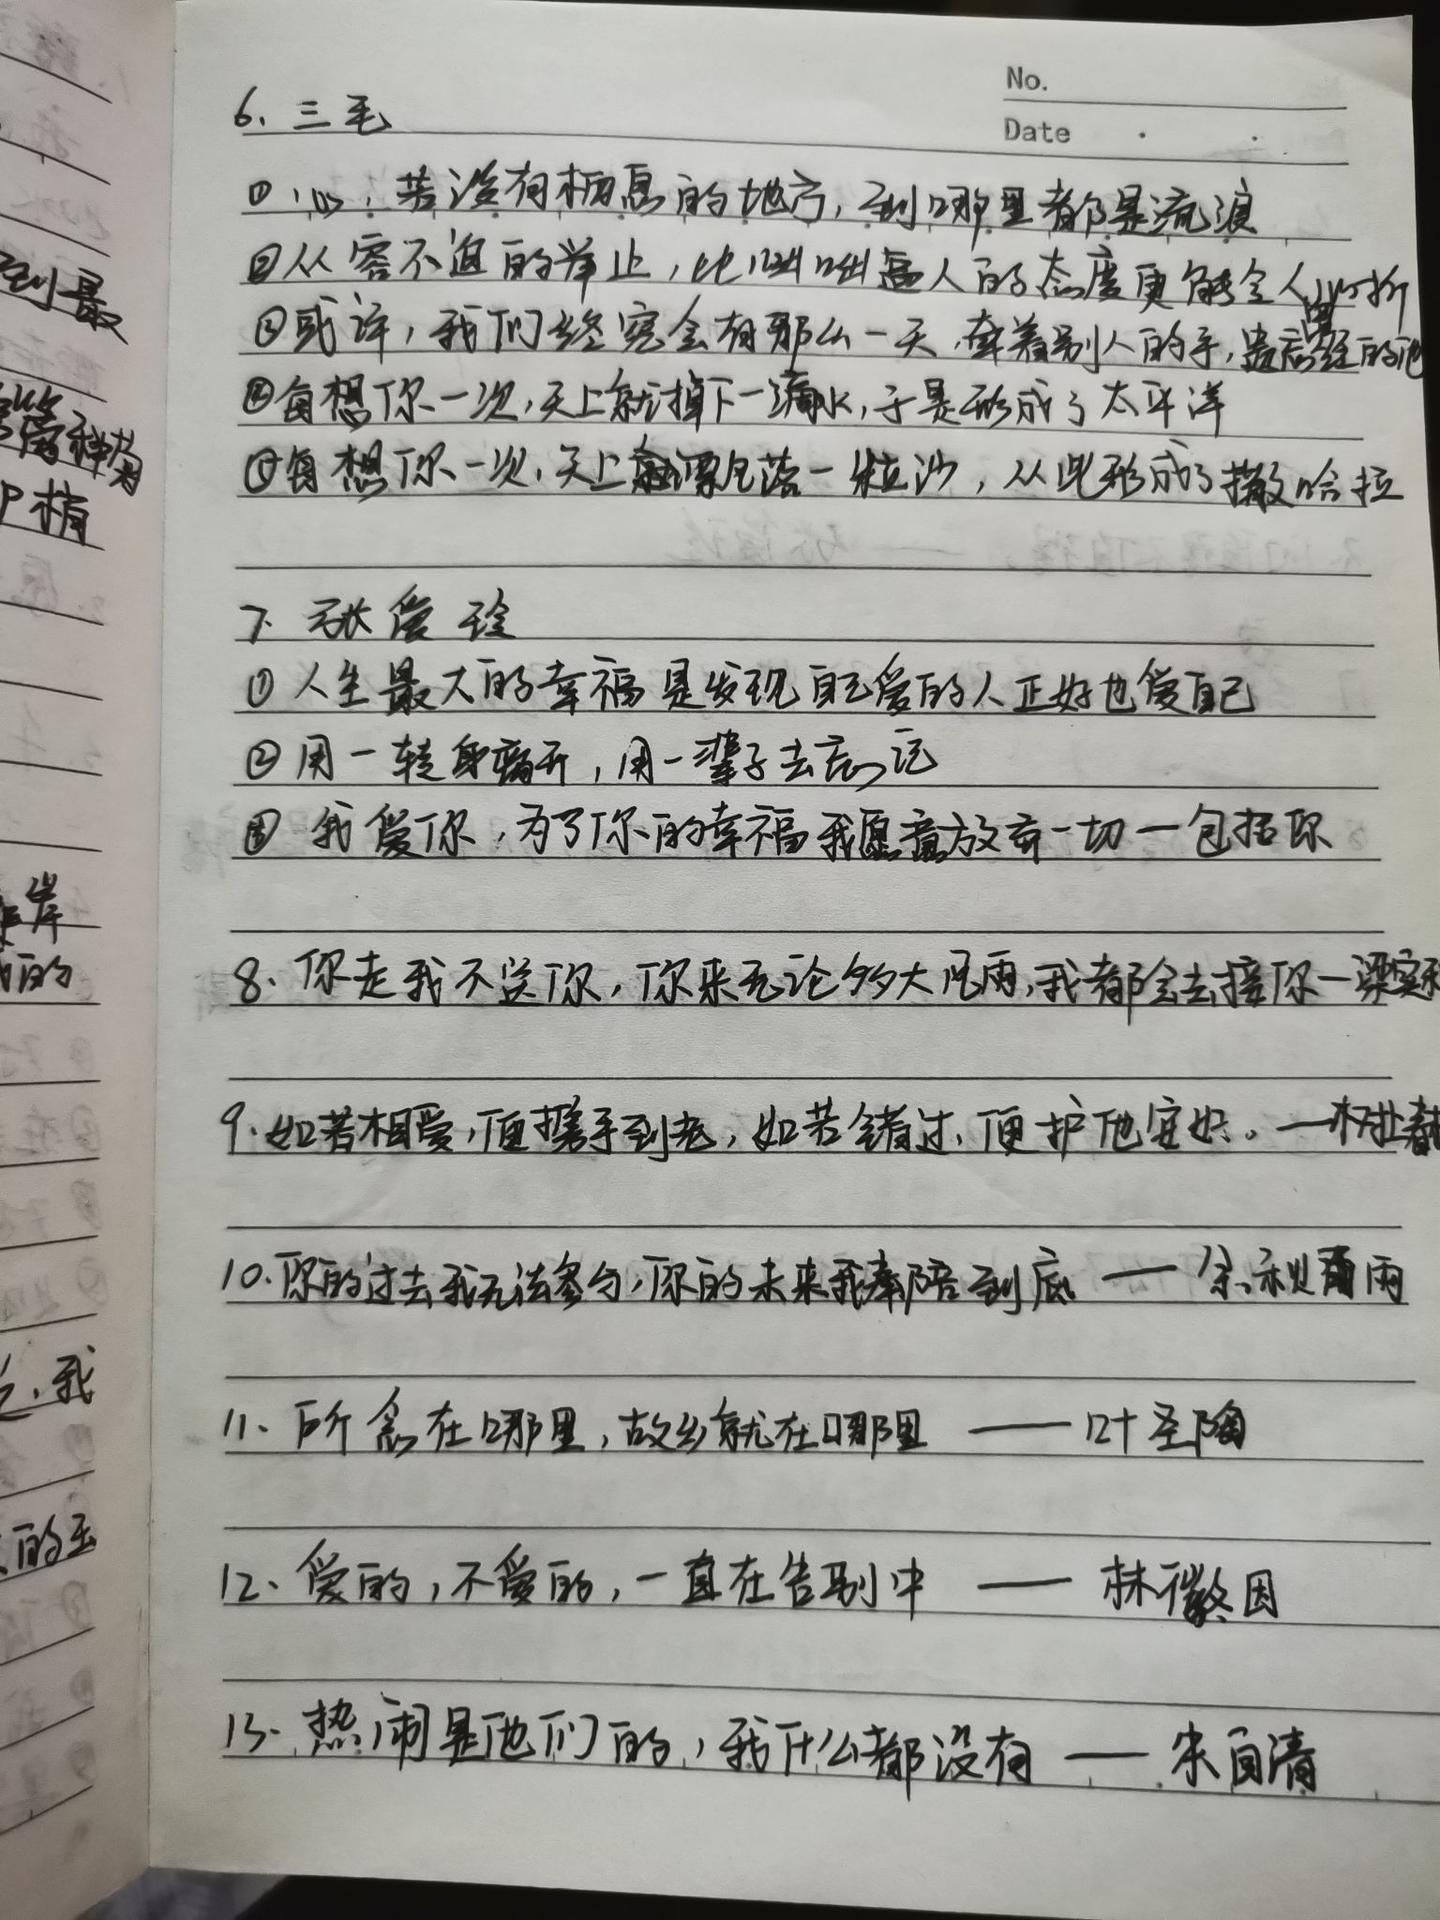 到最
的
No.
Date
6、三毛
①心,若没有栖息的地方,到哪里都是流浪
②从容不迫的举止,比咄咄逼人的态度更能令人心折
③或许,我们终究会有那么一天,牵着别人的手,遗忘曾经的他
④每想你一次,天上就掉下一滴水,于是形成了太平洋
⑤每想你一次,天上就飘落一粒沙,从此形成了撒哈拉
7、张爱玲
①人生最大的幸福是发现自己爱的人正好也爱自己
②用一转身离开,用一辈子去忘记
③我爱你,为了你的幸福我愿意放弃一切一包括你
8、你走我不送你,你来无论多大风雨,我都会去接你一梁实秋
9、如若相爱,便携手到老,如若错过,便护他安好。一
10、你的过去我无法参与,你的未来我奉陪到底 —— 余秋雨
11、所念在哪里,故乡就在哪里 —— 叶圣陶
12、爱的,不爱的,一直在告别中 —— 林徽因
13、热闹是他们的,我什么都没有 —— 朱自清
岸
的
我
的玉